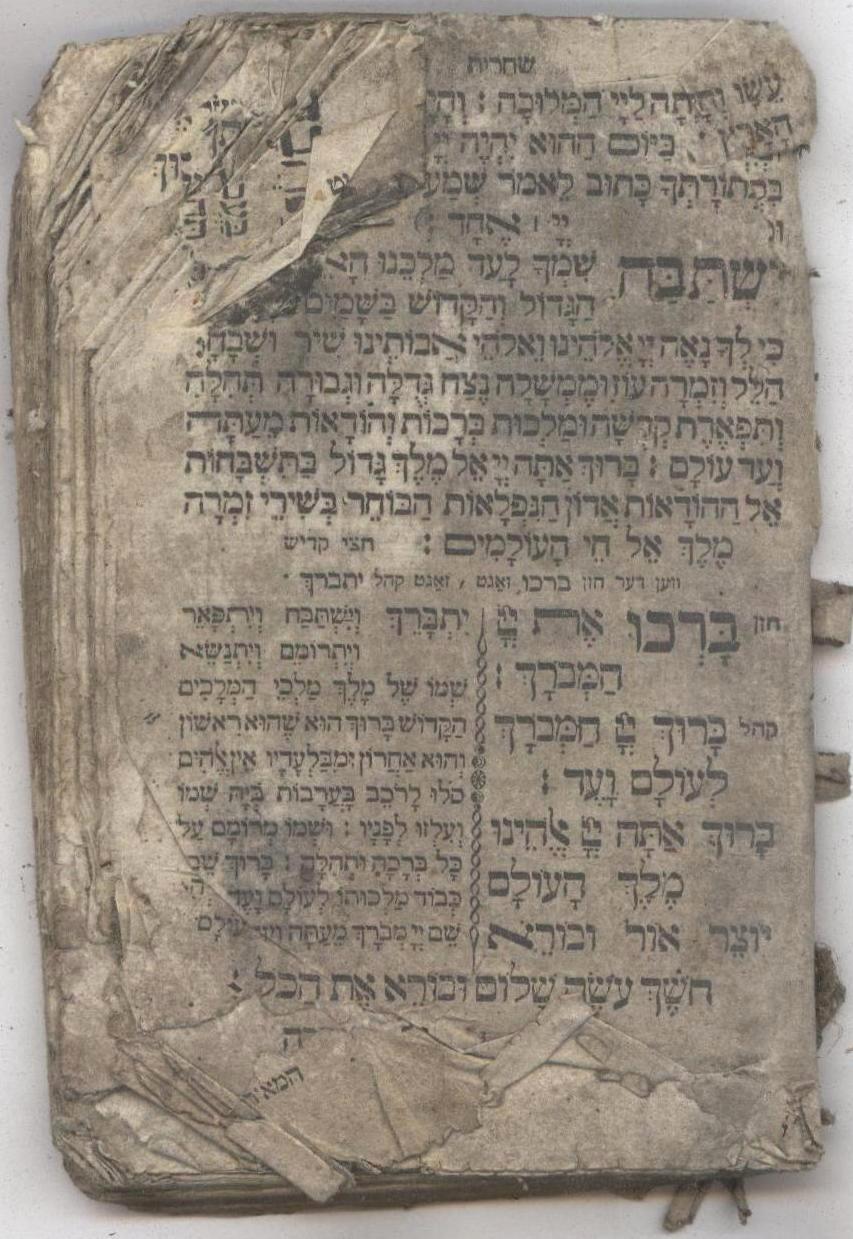 שחרית
עֵשָׂו וְהָיְתָה לַיְיָ הַמְּלוּכָה : וְהָיָה
הָאָרֶץ בַּיּוֹם הַהוּא יִהְיֶה יְיָ
בְּתוֹרָתְךָ כָּתוּב לֵאמֹר שְׁמַע
יְיָ ׀ אֶחָד :
יִשְׁתַּבַּח שִׁמְךָ לָעַד מַלְכֵּנוּ
הַגָּדוֹל וְהַקָּדוֹשׁ בַּשָּׁמַיִם
כִּי לְךָ נָאֶה יְיָ אֱלֹהֵינוּ וֵאלֹהֵי אֲבוֹתֵינוּ שִׁיר וּשְׁבָחָה
הַלֵּל וְזִמְרָה עוֹז וּמֶמְשָׁלָה נֶצַח גְּדֻלָּה וּגְבוּרָה תְּהִלָּה
וְתִפְאֶרֶת קְדֻשָּׁה וּמַלְכוּת בְּרָכוֹת וְהוֹדָאוֹת מֵעַתָּה
וְעַד עוֹלָם : בָּרוּךְ אַתָּה יְיָ אֵל מֶלֶךְ גָּדוֹל בַּתִּשְׁבָּחוֹת
אֵל הַהוֹדָאוֹת אֲדוֹן הַנִּפְלָאוֹת הַבּוֹחֵר בְּשִׁירֵי זִמְרָה
מֶלֶךְ אֵל חֵי הָעוֹלָמִים : חצי קדיש
ווען דער חזן ברכו זאגט , זאגט קהל יתברך
חזן בָּרְכוּ אֶת יְיָ
הַמְבֹרָךְ :
קהל בָּרוּךְ יְיָ הַמְבֹרָךְ
לְעוֹלָם וָעֶד :
בָּרוּךְ אַתָּה יְיָ אֱלֹהֵינוּ
מֶלֶךְ הָעוֹלָם
יוֹצֵר אוֹר וּבוֹרֵא
יִתְבָּרֵךְ וְיִשְׁתַּבַּח וְיִתְפָּאַר
וְיִתְרוֹמֵם וְיִתְנַשֵּׂא
שְׁמוֹ שֶׁל מֶלֶךְ מַלְכֵי הַמְּלָכִים
הַקָּדוֹשׁ בָּרוּךְ הוּא שֶׁהוּא רִאשׁוֹן
וְהוּא אַחֲרוֹן וּמִבַּלְעָדָיו אֵין אֱלֹהִים
סֹלּוּ לָרֹכֵב בָּעֲרָבוֹת בְּיָהּ שְׁמוֹ
וְעִלְזוּ לְפָנָיו : וּשְׁמוֹ מְרוֹמָם עַל
כָּל בְּרָכָה וּתְהִלָּה : בָּרוּךְ שֵׁם
כְּבוֹד מַלְכוּתוֹ לְעוֹלָם וָעֶד יְהִי
שֵׁם יְיָ מְבֹרָךְ מֵעַתָּה וְעַד עוֹלָם
חֹשֶׁךְ עֹשֶׂה שָׁלוֹם וּבוֹרֵא אֶת הַכֹּל :
המאיר